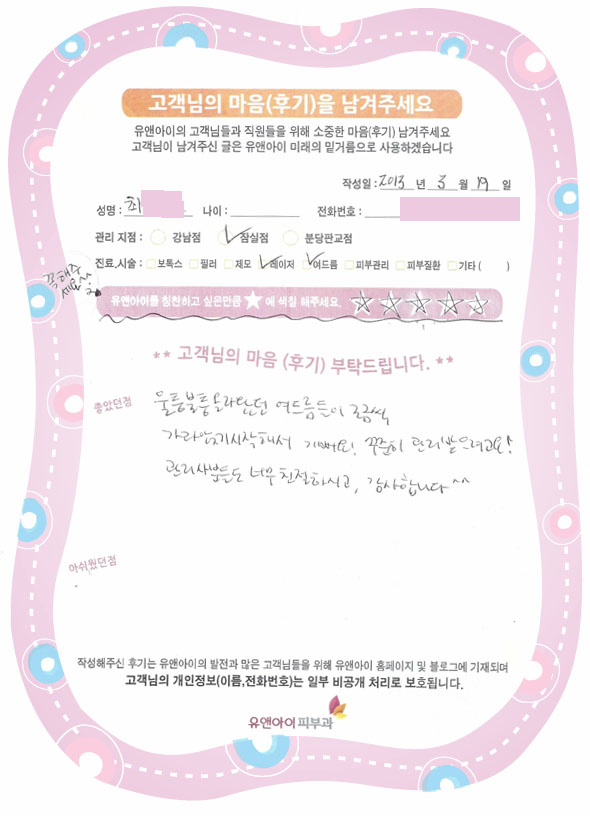 고객님의 마음(후기)을 남겨주세요
유앤아이의 고객님들과 직원들을 위해 소중한 마음(후기) 남겨주세요
고객님이 남겨주신 글은 유앤아이 미래의 밑거름으로 사용하겠습니다
작성일 : 2013 년 3 월 19 일
성명 : 최 나이 : 전화번호 :
관리 지점 : 강남점 잠실점 분당판교점
진료,시술 : 보톡스 필러 제모 레이저 여드름 피부관리 피부질환 기타 ( )
꼭해주
세요^^
유앤아이를 칭찬하고 싶은만큼 ★ 에 색칠 해주세요. ☆ ☆ ☆ ☆ ☆
** 고객님의 마음 (후기) 부탁드립니다. **
좋았던점
울퉁불퉁 올라왔던 여드름들이 조금씩
가라앉기시작해서 기뻐요! 꾸준히 관리받으려고요!
관리사분들도 너무 친절하시고, 감사합니다^^
아쉬웠던점
작성해주신 후기는 유앤아이의 발전과 많은 고객님들을 위해 유앤아이 홈페이지 및 블로그에 기재되며
고객님의 개인정보(이름,전화번호)는 일부 비공개 처리로 보호됩니다.
유앤아이피부과